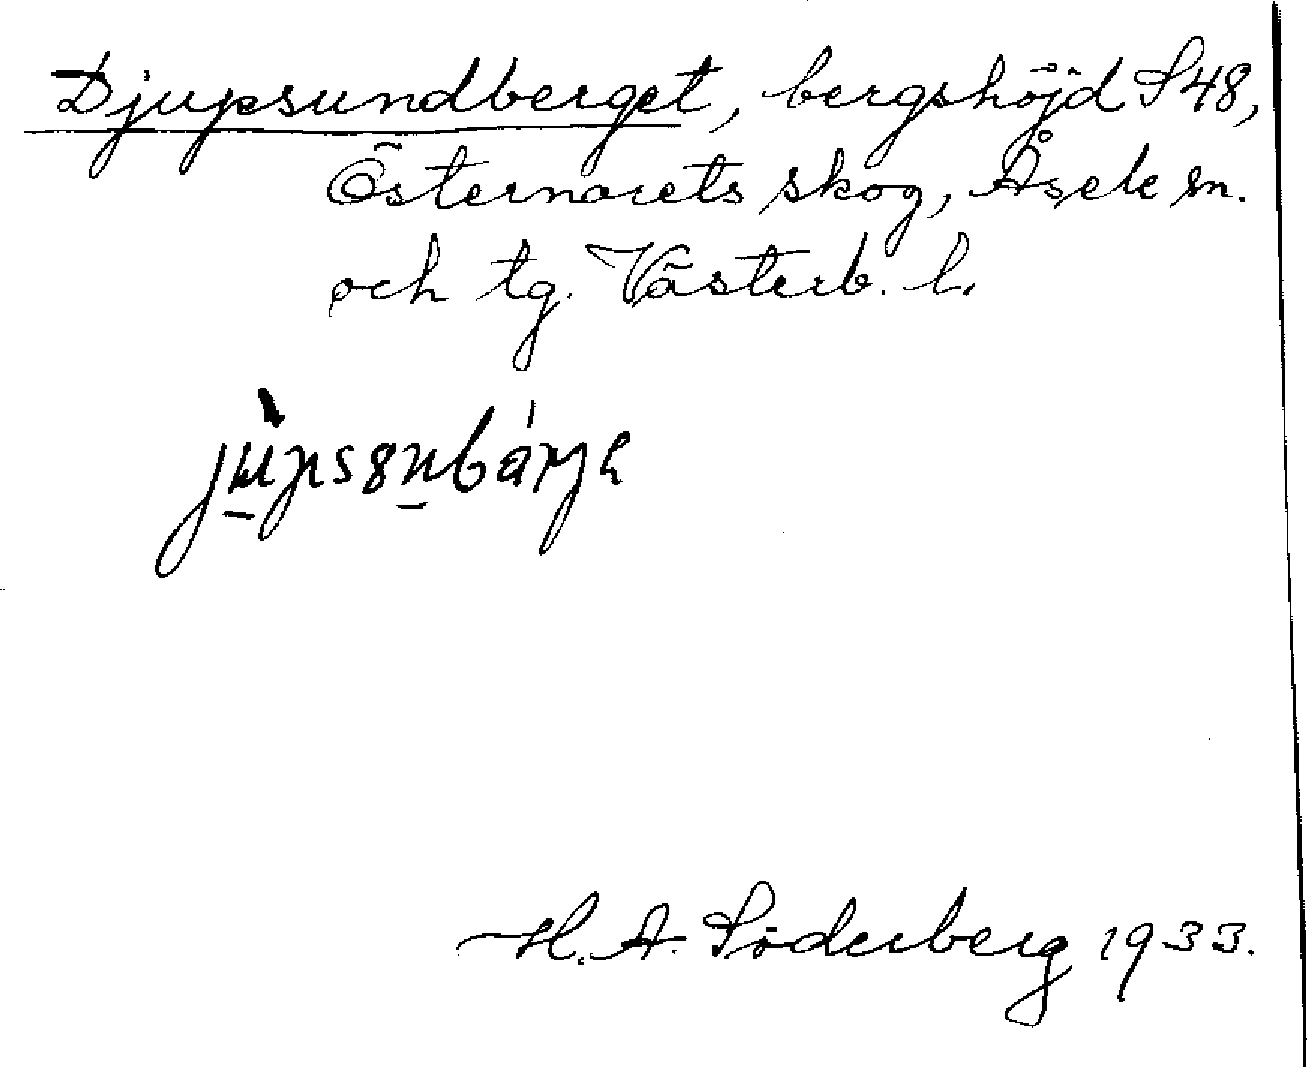 Djupsundberget, bergshöjd S48,
Östernorets skog, Åsele sn.
och tg. Västerb. l.
H. A. Söderberg 1933.